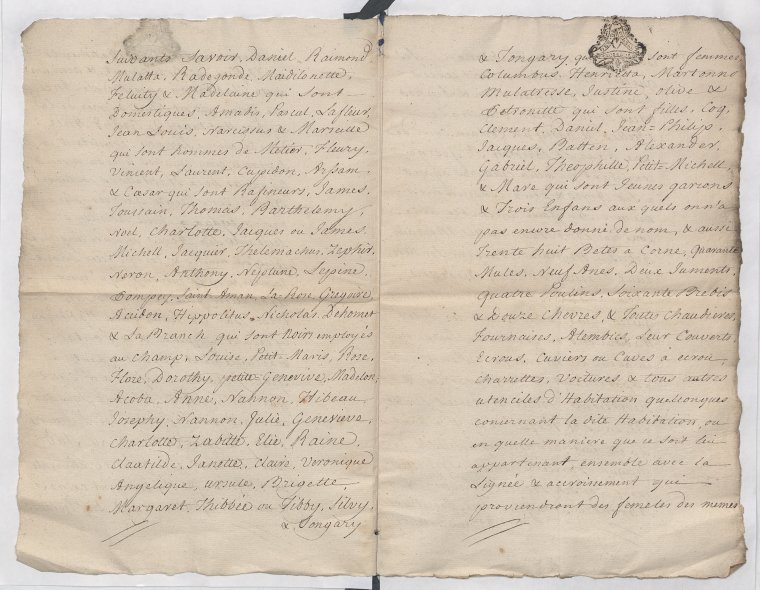 Suivants Savoir, Daniel, Raimond
Mulatto, Radegonde, Maidilonette,
Felicity & Madelaine qui sont
Domestiques, Amadis, Pascal, Lafleur,
Jean Louis, Narcissus & Marseille
qui sont hommes de Metier, Fleury,
Vincent, Laurent, Cupidon,
& Cæsar qui sont Rafineurs, James,
Toussain, Thomas, Barthelemy,
Noel, Charlotte, Jacques ou James,
Michell, Jacquir, Thelemachus, Zephir,
Neron, Anthony, Neptune, Lepine,
Pompey, Saint Aman, La Rose, Gregoire,
Hippolitus, Nicholas, Dehomet
& La Branch qui sont Noirs employés
au Champ, Louise, Petit-Maris, Rose,
Flore, Dorothy, petite-Genevive, Madelon,
Acoba, Anne, Nannon, Hibeau,
Josephy, Nannon, Julie, Genevieve,
Charlotte, Zabeth, Elie, Raine,
Claatilde, Janotte, Claire, Veronique
Angelique, ursule, Brigette,
Margaret, Thibbée ou Tibby, Silvy,
& Tongary
& Tongary qui sont femmes,
Columbus, Henrietta, Martonne
Mulatresse, Justine, olive &
Petronille qui sont filles, Coq,
Clement, Daniel, Jean-Philip,
Jacques, Batten, Alexander,
Gabriel, Theophille, Petit-Michell,
& Marc qui sont Jeunes garçons
& Trois Enfans aux quels on n'a
pas encore donné de nom, & aussi
Trente huit Betes a Corne, Quarante
Mules, Neuf Anes, Deux Juments,
Quatre Poulins, Soixante Brebis
& Douze Chevres, & Toute Chaudieres,
Fournaises, Alembics, Leur Couverts
Ecrous, Cuviers ou Caves à ecrou,
charrettes, Voitures & tous autres
utenciles d'Habitation quelconques
concernant la dite Habitation, ou
en quelle maniere que ce soit lui
appartenant, ensemble avec la
Lignée & accroisement qui
proviendront des femeles des memes